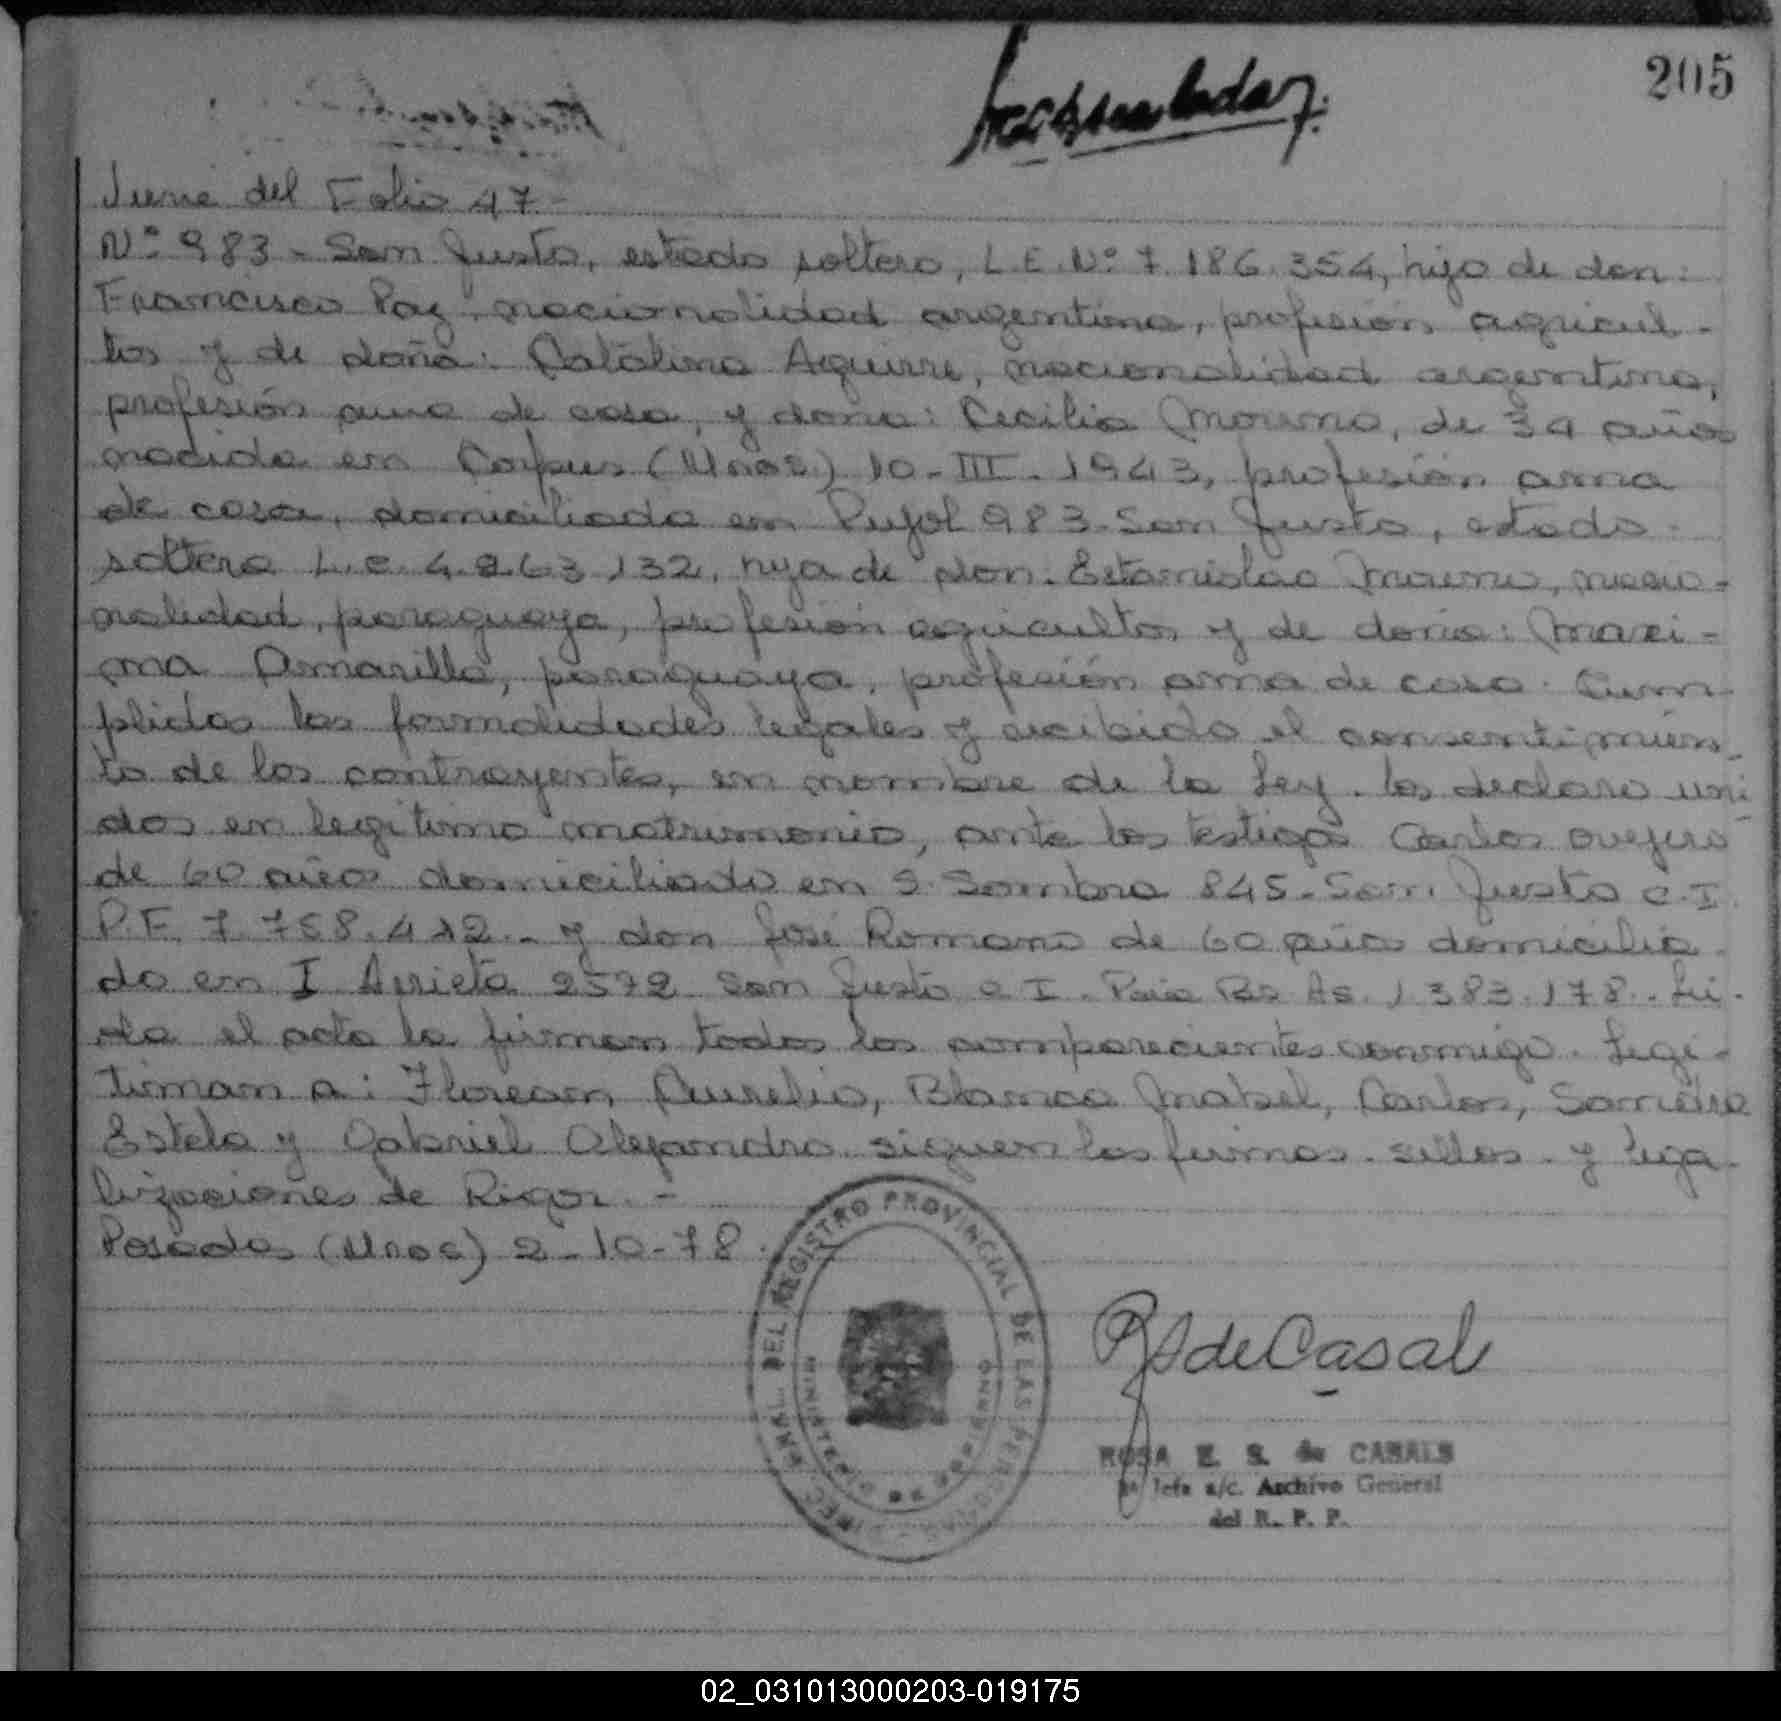 205
Viene del Folio 47-
Nº 983 - San Justo, estado soltero, L.E. Nº 7.186.354, hijo de don:
Francisco Paz, nacionalidad argentina, profesión agricul-
tor y de doña: Catalina Aguirre, nacionalidad argentina,
profesión ama de casa, y doña: Cecilia Moreno, de 34 años
nacida en Corpus (Mnes) 10-III-1943, profesión ama
de casa, domiciliada en Pujol 983-San Justo, estado
soltera L.C. 4.263.132, hija de don: Estanislao Moreno, nacio-
nalidad, paraguaya, profesión agricultor y de doña: Maxi-
ma Amarilla, paraguaya, profesión ama de casa. Cum-
plidas las formalidades legales y recibido el consentimien-
to de los contrayentes, en nombre de la Ley. los declaro uni-
dos en legitimo matrimonio, ante los testigos Carlos Ovejero
de 60 años domiciliado en S. Sombra 845-San Justo C.I.
P.F. 7.758.412.- y don José Romano de 60 años domicilia
do en I Arrieta 2572 San Justo C.I. Pcia Bs. As. 1.383.178.- Lei-
da el acta la firman todos los comparecientes conmigo. Legi-
timan a: Florean Aurelio, Blanca Mabel, Carlos, Sandra
Estela y Gabriel Alejandro. siguen las firmas. sellos. y lega-
lizaciones de Rigor. -
Posadas (Mnes) 2-10-78.
DEL REGISTRO PROVINCIAL DE LAS PERSONAS
MINISTERIO DE GOBIERNO
RS de Casal
ROSA E. S. de CASALS
Jefa a/c. Archivo General
del R. P. P.
02_031013000203-019175